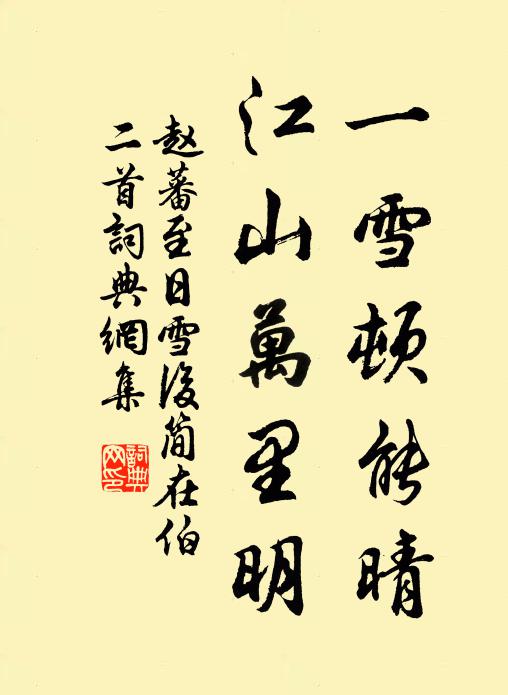 一雪顿能晴
江山萬里明
赵蕃至日雪後简在伯
二首詞典網集
詞典
网印